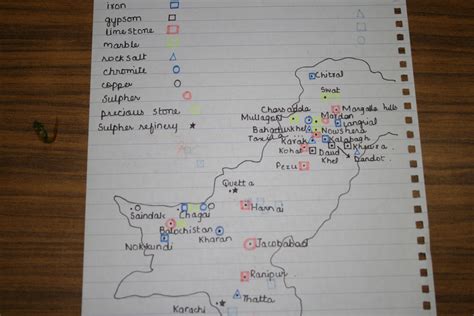 iron
gypsom
limestone
marble
rocksalt
chromite
copper
Sulpher
precious stone
Sulpher refinery
Chitral
Swat
Charsadda
Margalla hills
Mullagori
Mardan
Bahadurkhel
Langrial
Nowshera
Taxila
Karak
Kalabagh
Kohat
Daud Khel
Khewra
Dandot.
Pezu
Quetta
Saindak
Chagai
Harnai
Balochistan
Kharan
Nokkundi
Jacobabad
Ranipur
Thatta
Karachi